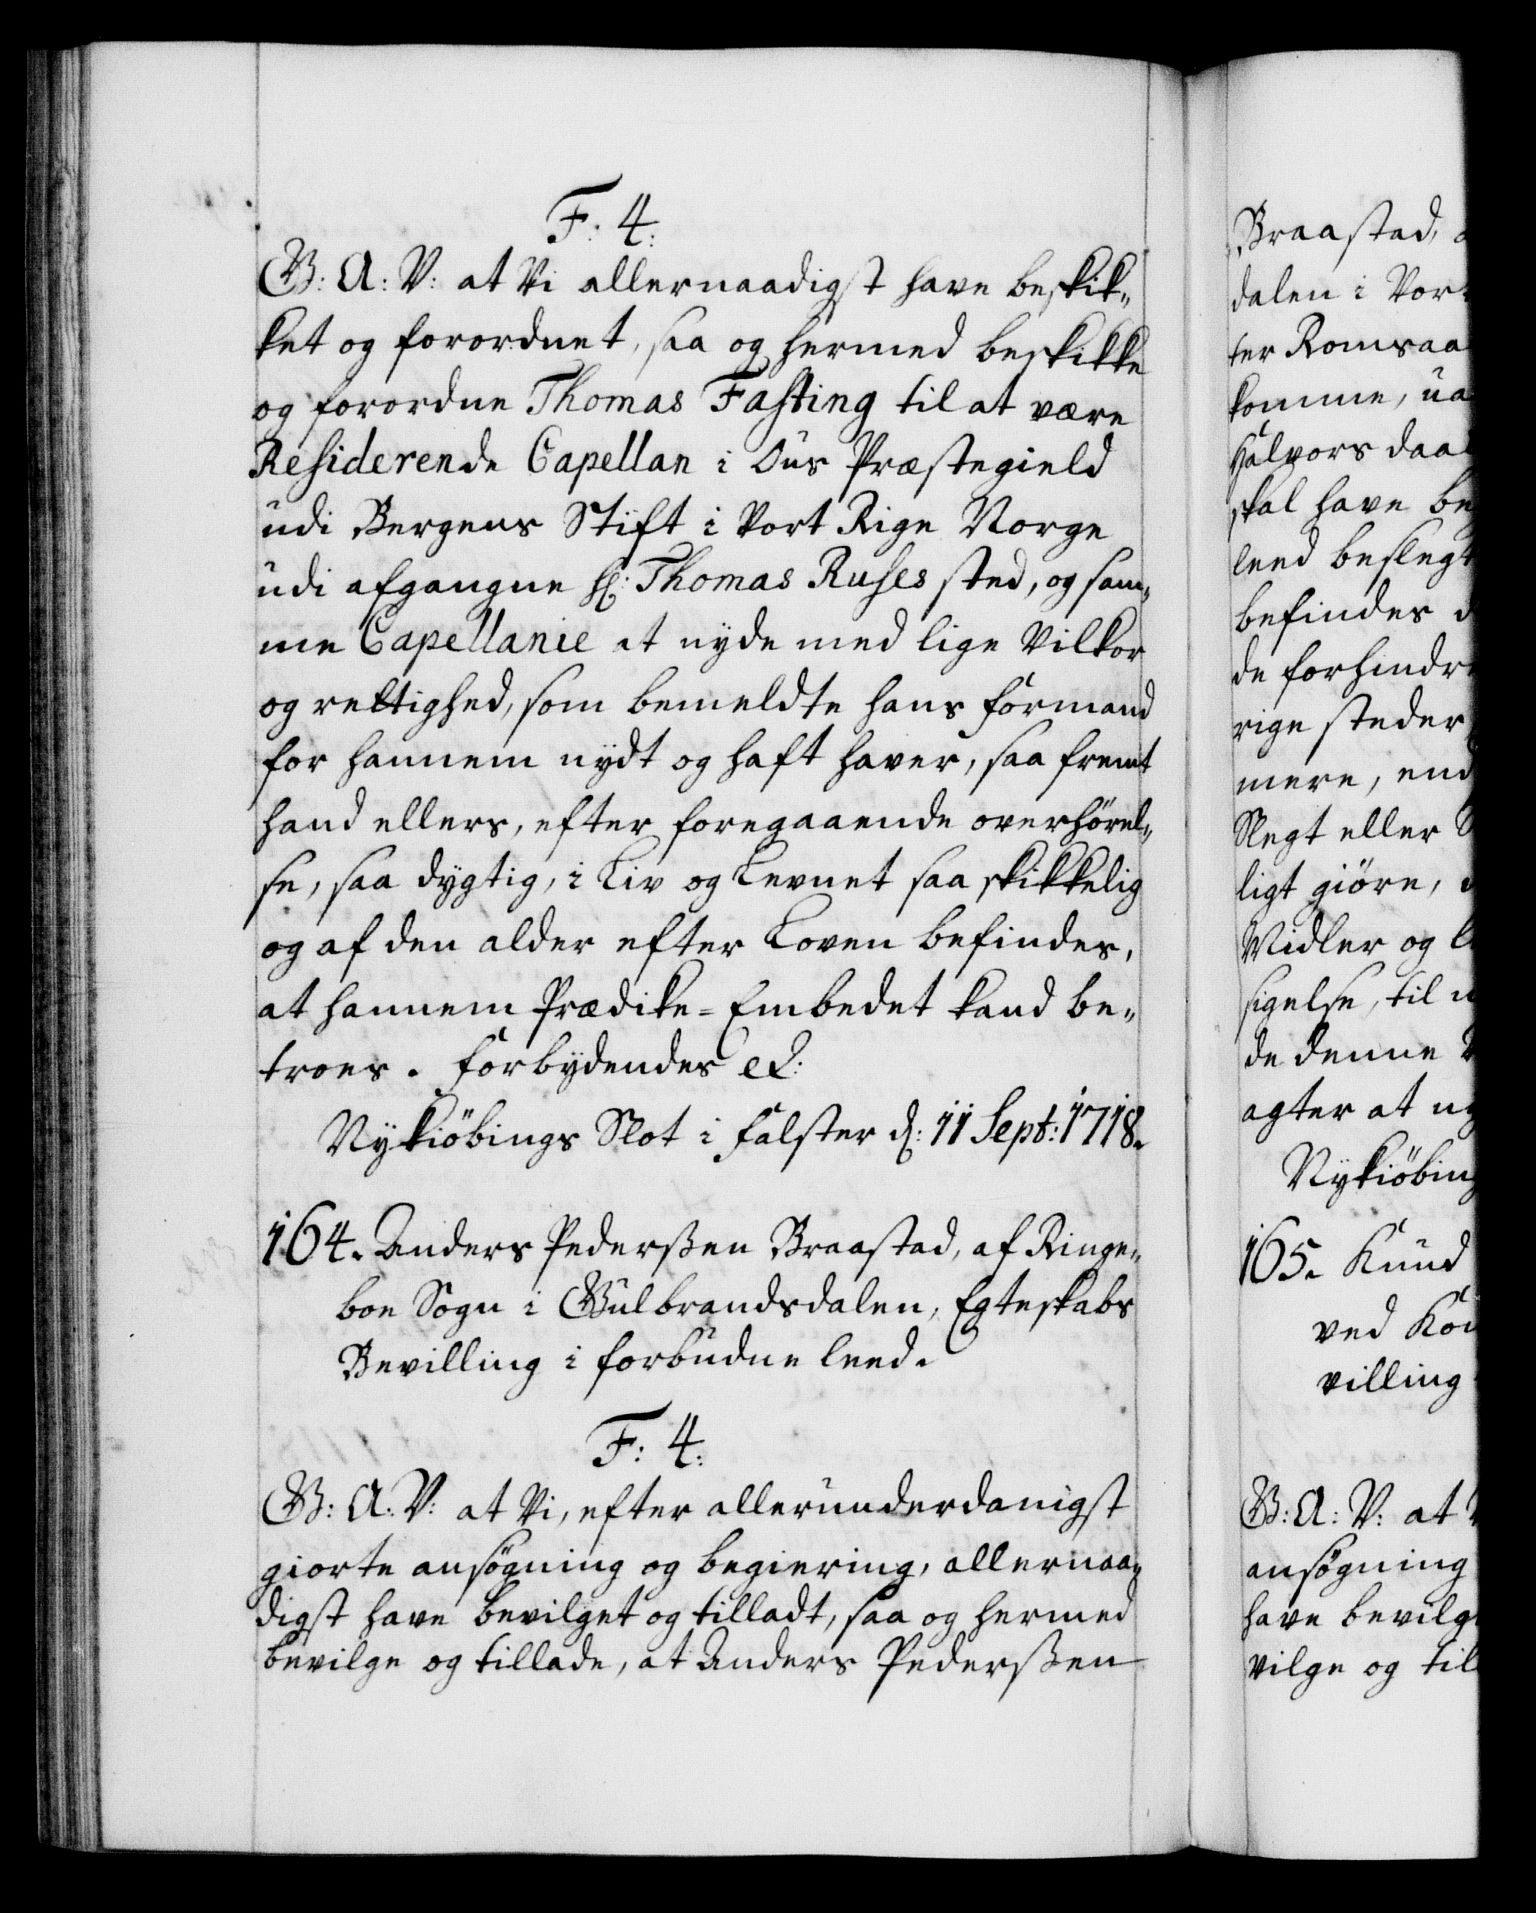 F: 4:
G: A: V: at Vi allernaadigst have beskik„
ket og forordnet, saa og hermed beskikke
og forordne Thomas Fasting til at være
Residerende Capellan i Ous Præstegield
udi Bergens Stift i Vort Rige Norge
udi afgangne Hr: Thomas Ruses sted, og sam„
me Capellanie at nyde med lige Vilkor
og rettighed, som bemeldte hans formand
for hannem nydt og haft haver, saa fremt
hand ellers, efter foregaaende overhörel„
se, saa dygtig, i Liv og Levnet saa skikkelig
og af den alder efter Loven befindes,
at hannem Prædike-Embedet kand be„
troes. Forbydendes etc:
Nykiöbings Slot i Falster d: 11 Sept: 1718.
164. Anders Pederßen Braastad, af Ringe„
boe Sogn i Gulbrandsdalen, Egteskabs
Bevilling i forbudne leed.
F: 4:
G: A: V: at Vi, efter allerunderdanigst
giorte ansögning og begiering, allernaa„
digst have bevilget og tilladt, saa og hermed
bevilge og tillade, at Anders Pederßen
Braastad,
dalen i Vor
ter Romsaa
komme, ua
Halvors daa
skal have be
leed beslegt
befindes
de forhindr
rige steder
mere, end
Slegt eller
ligt giöre,
Midler og
sigelse, til
de denne
agter at
Nykiöbing
165. Knud
ved Kon
villing
G: A: V: at
ansögning
have bevilg
vilge og til